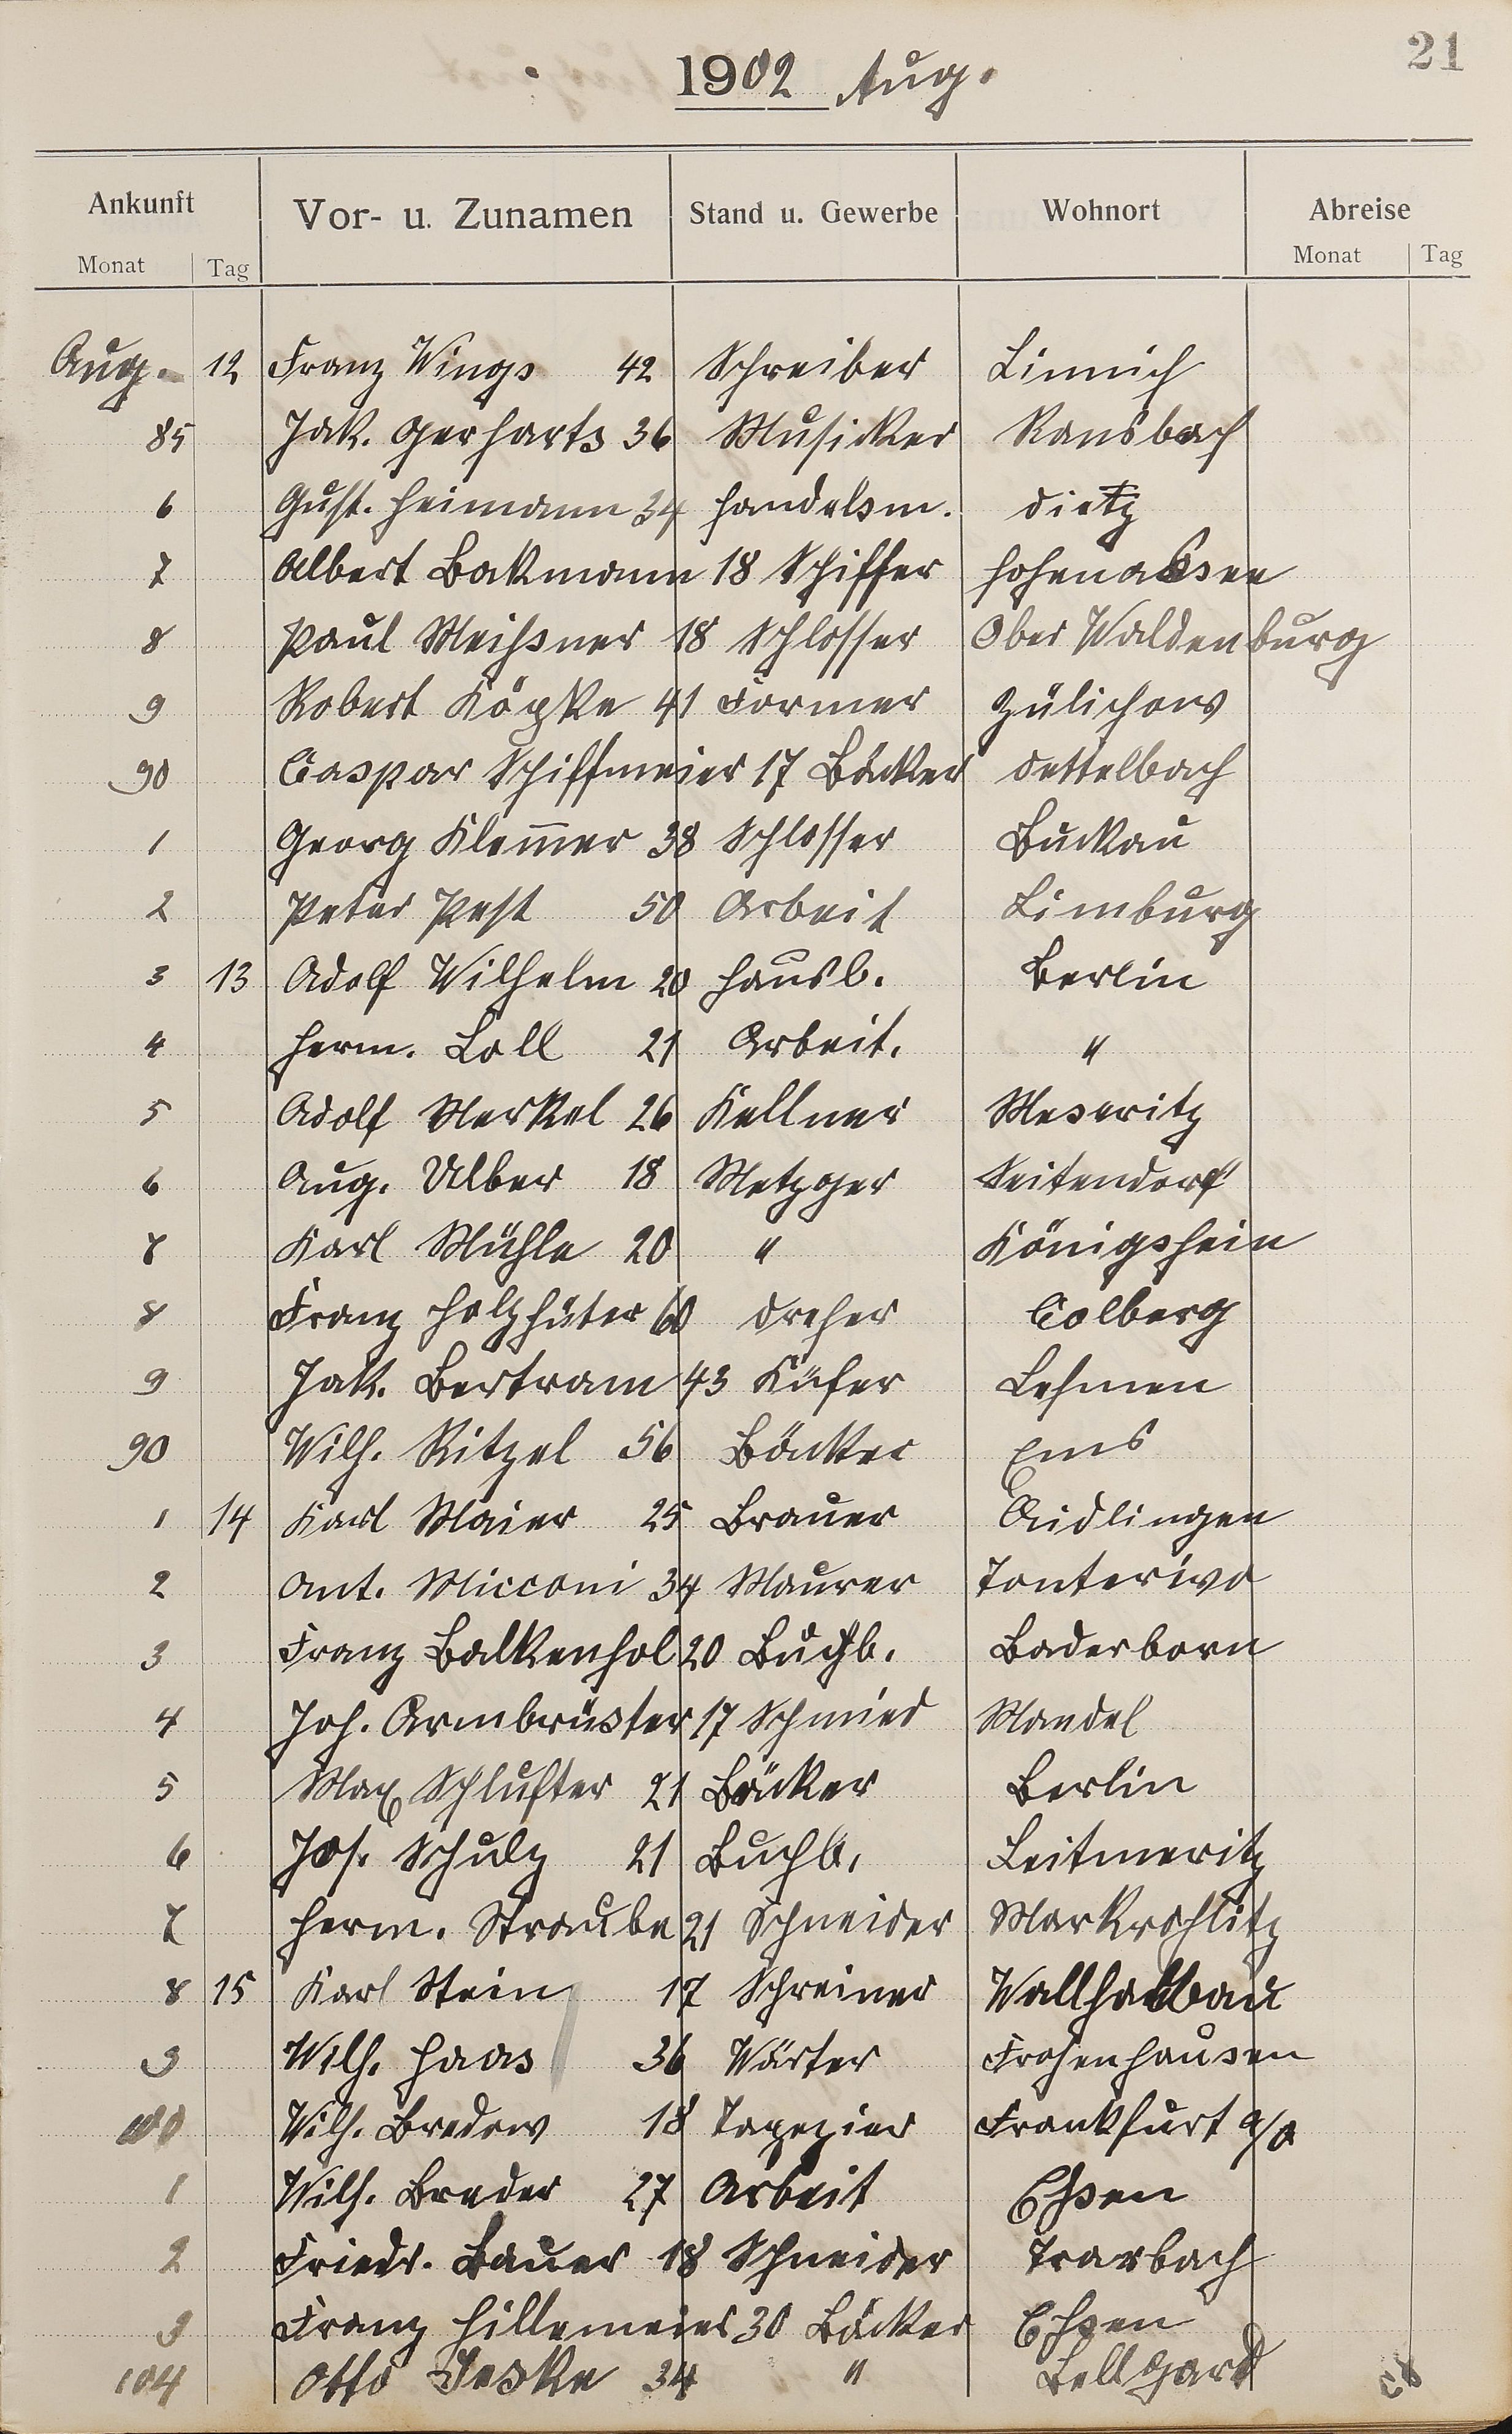 21
1902 Aug.
Ankunft Vor- u. Zunamen Stand u. Gewerbe Wohnort Abreise
Monat Tag Monat Tag
Aug. 12 Franz Wings 42 Schreiber Linnich
85 Jak. Gerharts 36 Musicker Ransbach
6 Gust. Heimann 34 Handelsm. Dietz
7 Albert Bakmann 18 Schiffer
8 Paul Meißner 18 Schlosser Ober Waldenburg
9 Robert Köpke 41 Former Zülichow
90 Caspar Schiffmeier 17 Bäcker Dettelbach
1 Georg Klem̄er 38 Schlosser Buckau
2 Peter Pest 50 Arbeit Limburg
3 13 Adolf Wilhelm 20 Hausb. Berlin
4 Herm. Loll 21 Arbeit. "
5 Adolf Merkel 26 Kellner Meseritz
6 Aug. Ulber 18 Metzger Seitendorf
7 Karl Mühle 20 " Königshein
8 Franz Holzhüter 60 Dreher Colberg
9 Jak. Bertram 43 Küfer Lehmen
90 Wilh. Ritzel 56 Bäcker Ems
1 14 Karl Maier 25 Brauer Aidlingen
2 Ant. Micconi 34 Maurer Tonterivo
3 Franz Balkenhol 20 Buchb. Baderborn
4 Joh. Armbrüster 17 Schmied Mandel
5 Max Schlufter 21 Bäcker Berlin
6 Jos. Schulz 21 Buchb. Leitmeritz
7 Herm. Straube 21 Schneider Markröhlitz
8 15 Karl Stein 17 Schreiner
9 Wilh. Haas 36 Wärter Frohenhausen
100 Wilh. Bredow 18 Tapezier Frankfurt a/o
1 Wilh. Breder 27 Arbeit Eßen
2 Friedr. Bauer 18 Schneider Trarbach
3 Franz Hillemeier 30 Bäcker Eßen
104 Otto Jeske 34 " Bellgard